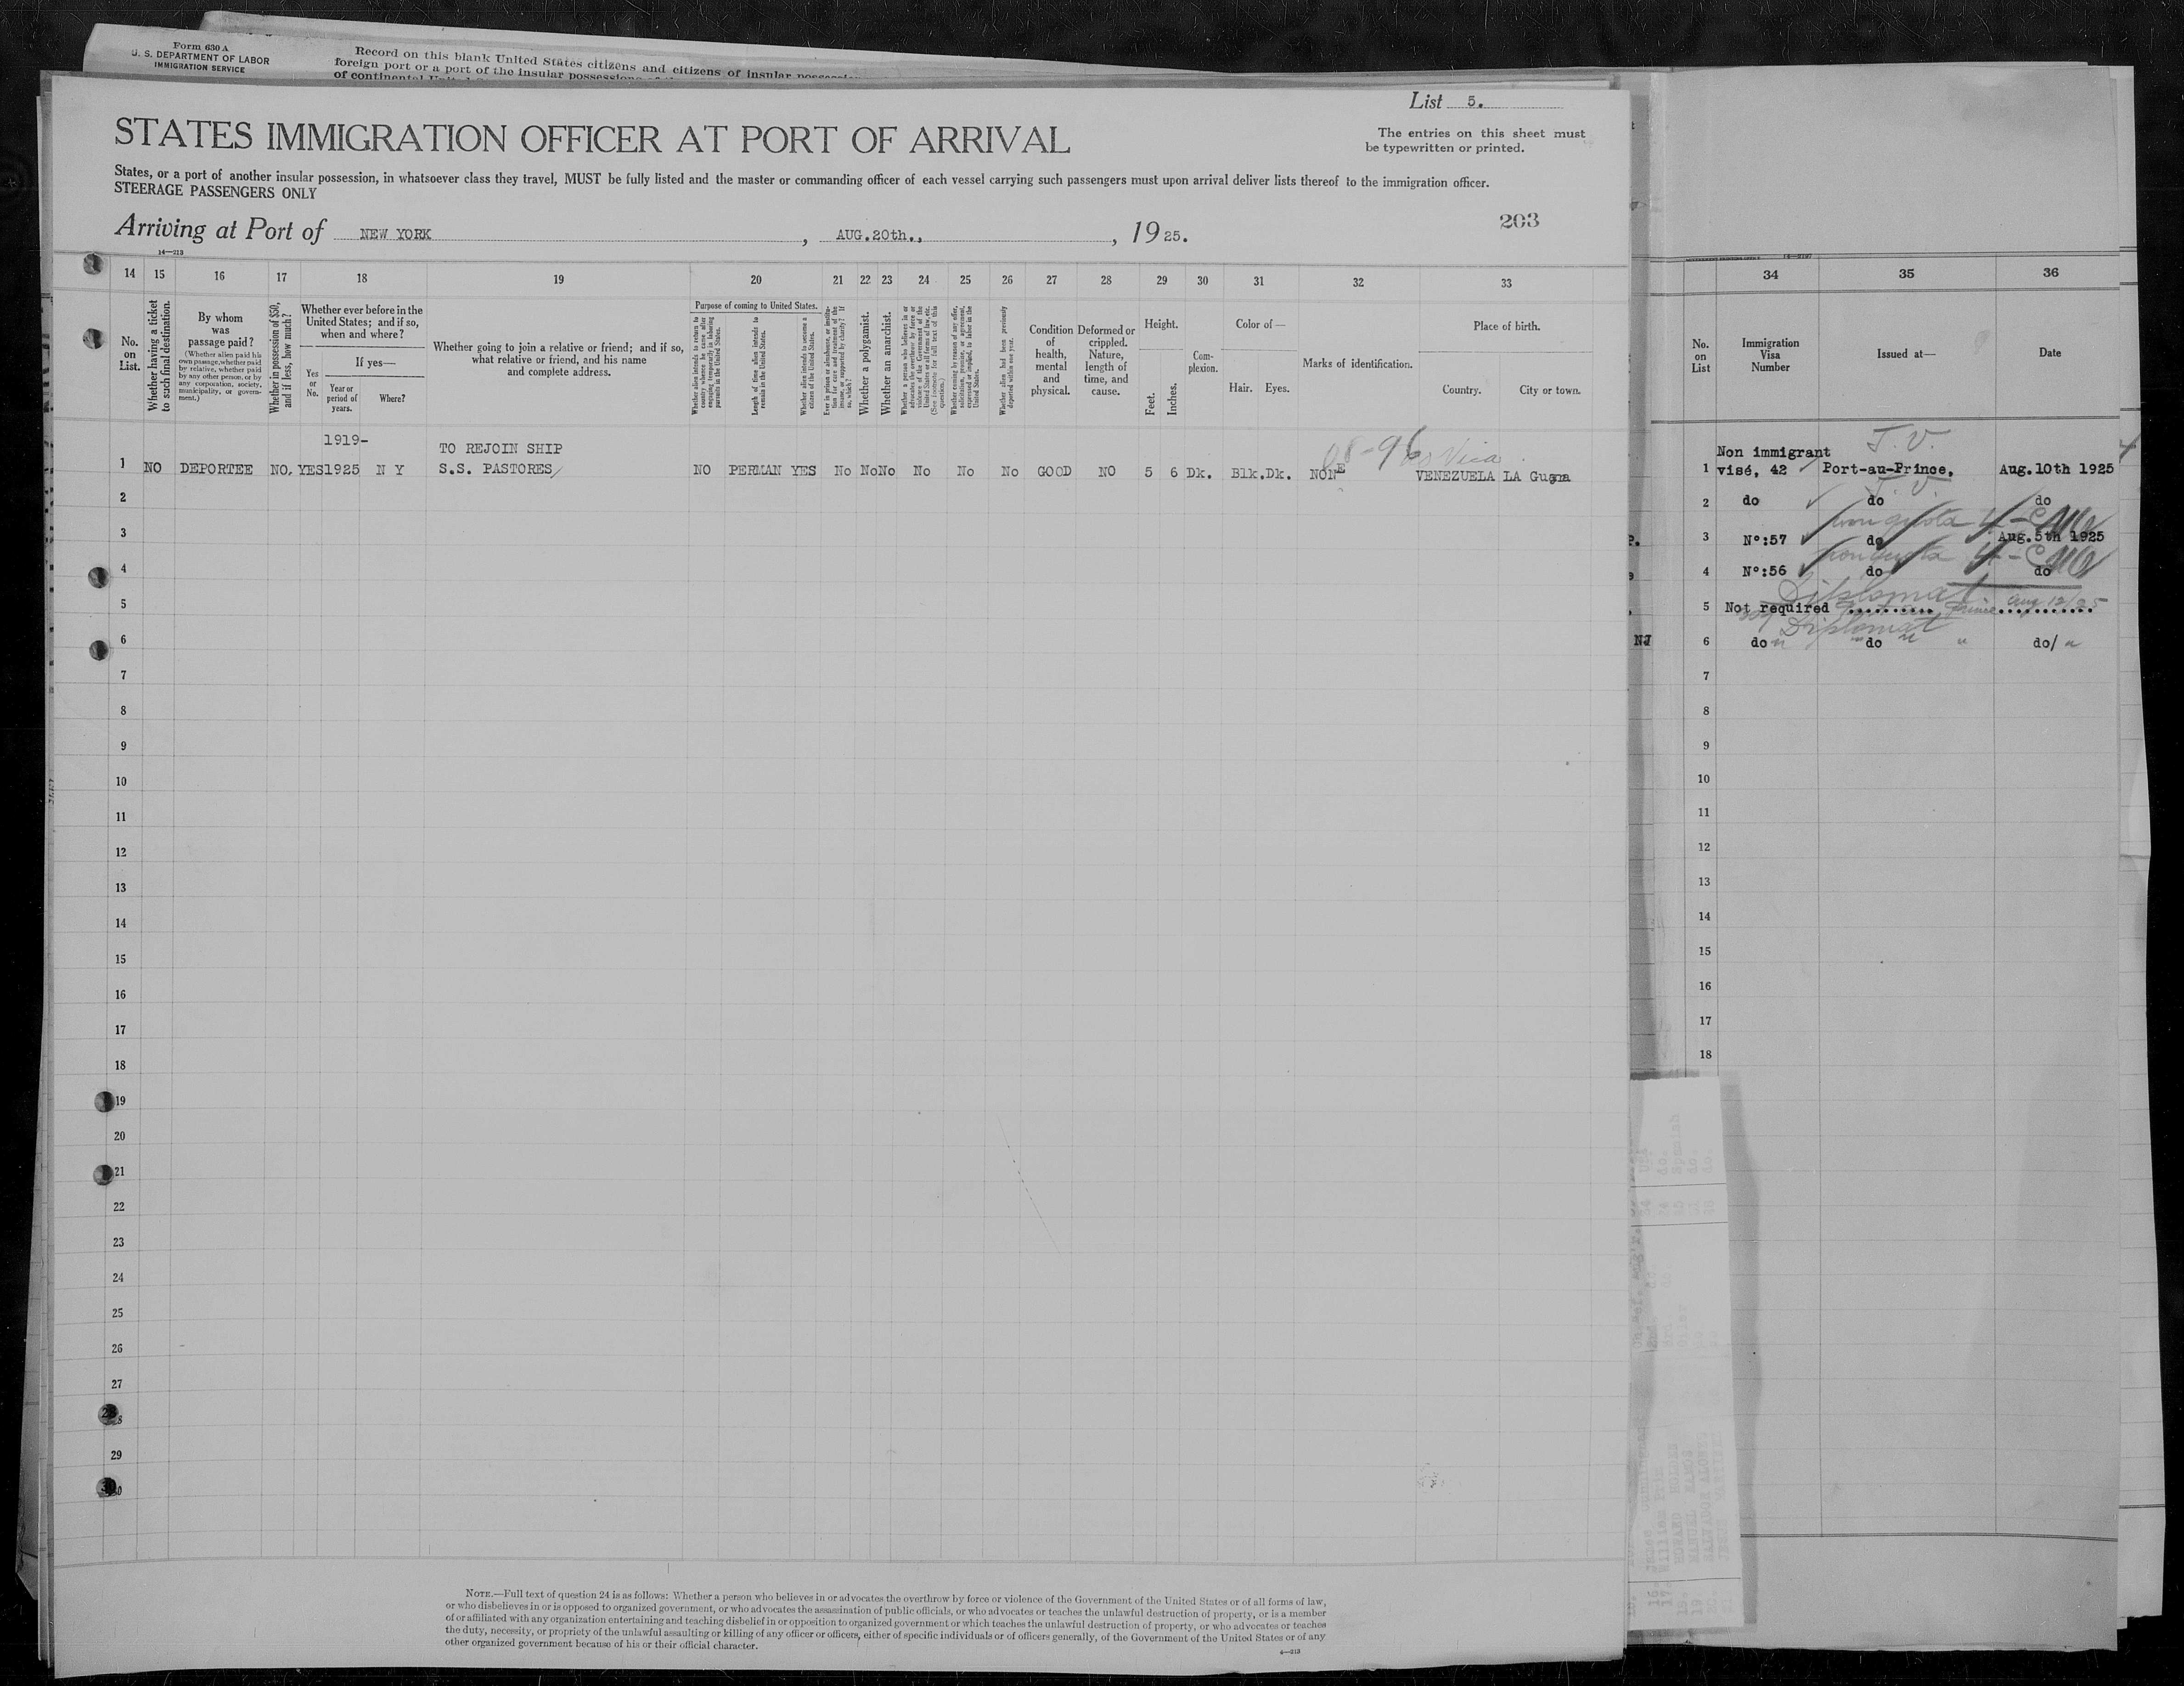 Form 630 A
U. S. DEPARTMENT OF LABOR
IMMIGRATION SERVICE
Record on this blank United States citizens and citizens of insular
foreign port or a port of the insular possessions
of continental
List 5.
STATES IMMIGRATION OFFICER AT PORT OF ARRIVAL
The entries on this sheet must
be typewritten or printed.
States, or a port of another insular possession, in whatsoever class they travel, MUST be fully listed and the master or commanding officer of each vessel carrying such passengers must upon arrival deliver lists thereof to the immigration officer.
STEERAGE PASSENGERS ONLY
Arriving at Port of NEW YORK, AUG.20th., , 1925.
203
14—213
14 15 16 17 18 19 20 21 22 23 24 25 26 27 28 29 30 31 32 33
No. on List.
Whether having a ticket to such final destination.
By whom was passage paid?
(Whether alien paid his own passage, whether paid by relative, whether paid by any other person, or by any corporation, society, municipality, or government.)
Whether in possession of $50, and if less, how much?
Whether ever before in the United States; and if so, when and where?
Yes or No.
If yes—
Year or period of years.
Where?
Whether going to join a relative or friend; and if so, what relative or friend, and his name and complete address.
Purpose of coming to United States.
Whether alien intends to return to country whence he came after engaging temporarily in laboring pursuits in the United States.
Length of time alien intends to remain in the United States.
Whether alien intends to become a citizen of the United States.
Ever in prison or almshouse, or institution for care and treatment of the insane, or supported by charity? If so, which?
Whether a polygamist.
Whether an anarchist.
Whether a person who believes in or advocates the overthrow by force or violence of the Government of the United States or all forms of law, etc. (See footnote for full text of this question.)
Whether coming by reason of any offer, solicitation, promise, or agreement, expressed or implied, to labor in the United States.
Whether alien had been previously deported within one year.
Condition of health, mental and physical.
Deformed or crippled. Nature, length of time, and cause.
Height.
Feet. Inches.
Complexion.
Color of—
Hair. Eyes.
Marks of identification.
Place of birth.
Country. City or town.
1919-
TO REJOIN SHIP
1 NO DEPORTEE NO, YES 1925 N Y S.S. PASTORES/ NO PERMAN YES No No No No No No GOOD NO 5 6 Dk. Blk. Dk. NONE VENEZUELA LA Guara
2
3
4
5
6
7
8
9
10
11
12
13
14
15
16
17
18
19
20
21
22
23
24
25
26
27
28
29
30
NOTE.—Full text of question 24 is as follows: Whether a person who believes in or advocates the overthrow by force or violence of the Government of the United States or of all forms of law,
or who disbelieves in or is opposed to organized government, or who advocates the assassination of public officials, or who advocates or teaches the unlawful destruction of property, or is a member
of or affiliated with any organization entertaining and teaching disbelief in or opposition to organized government or which teaches the unlawful destruction of property, or who advocates or teaches
the duty, necessity, or propriety of the unlawful assaulting or killing of any officer or officers, either of specific individuals or of officers generally, of the Government of the United States or of any
other organized government because of his or their official character.
34 35 36
No. on List
Immigration Visa Number
Issued at—
Date
T. V.
Non immigrant
1 visé, 42 Port-au-Prince, Aug.10th 1925
T. V.
2 do do do
non quota 4-C
3 Nº:57 do Aug.5th 1925
non quota 4-C
4 Nº:56 do do
Diplomat
5 Not required Aug 12/25
Diplomat
NJ 6 do do do/
7
8
9
10
11
12
13
14
15
16
17
18